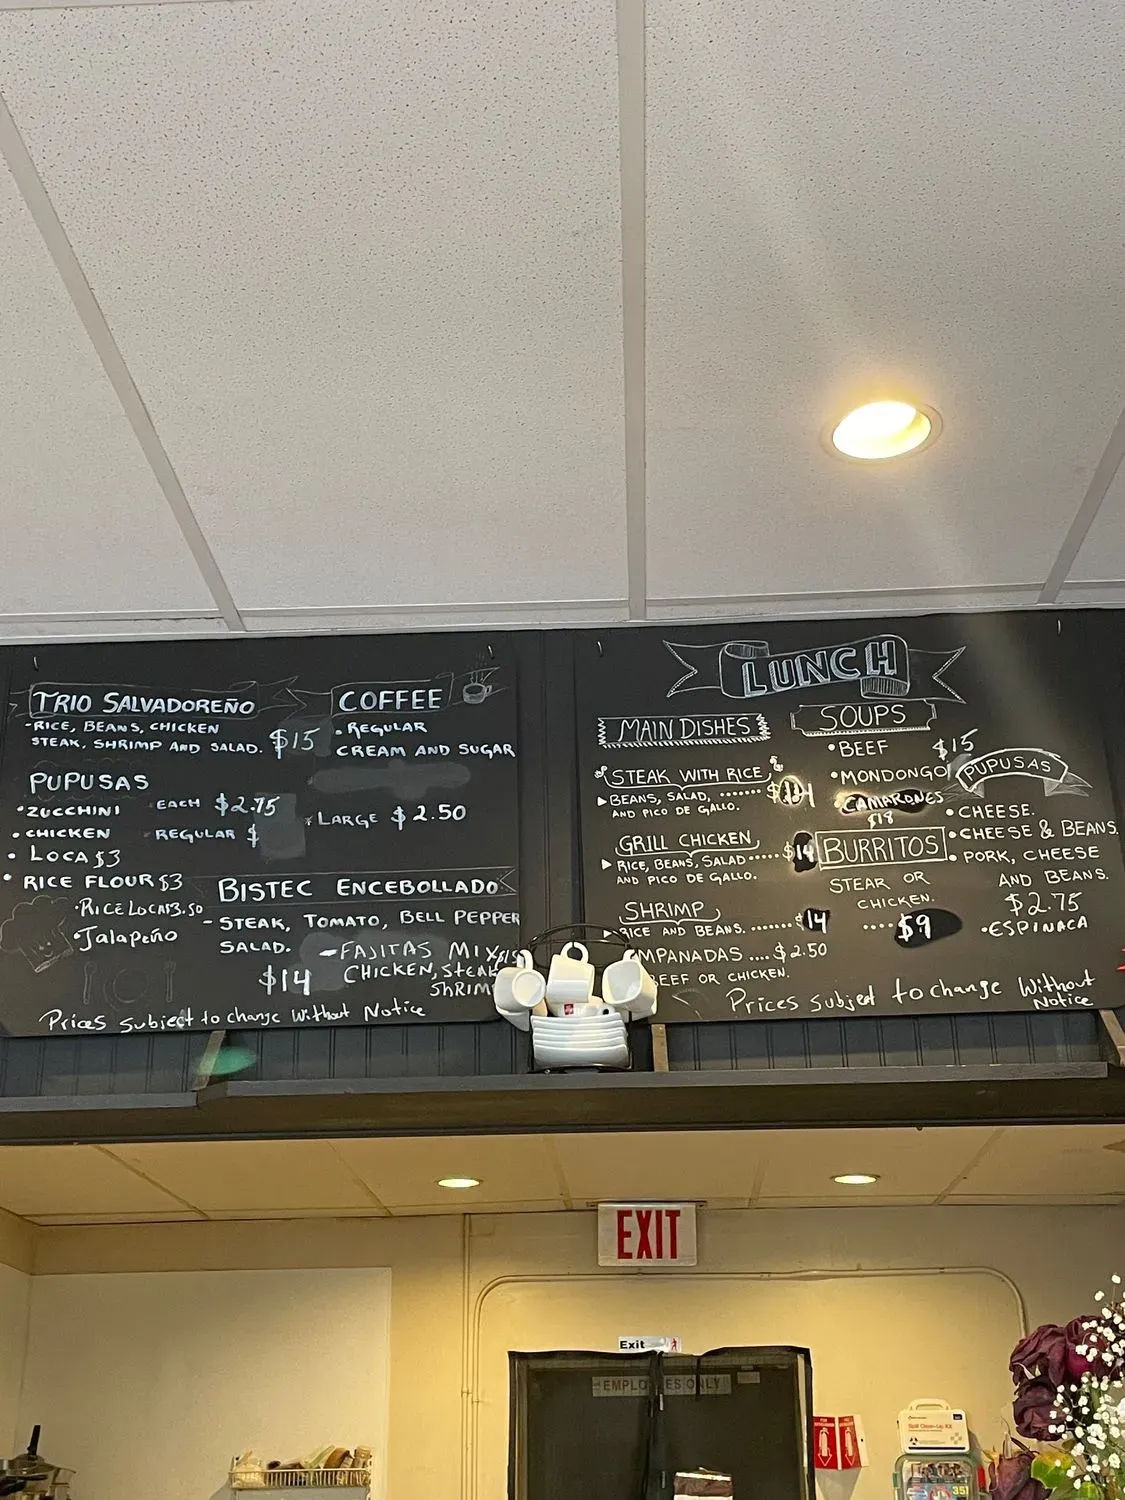 TRIO SALVADOREÑO
-RICE, BEANS, CHICKEN
STEAK, SHRIMP AND SALAD. $15
PUPUSAS
•ZUCCHINI
•CHICKEN
• LOCA $3
• RICE FLOUR $3
•RICE LOCA $3.50
•Jalapeño
EACH $2.75
REGULAR $
COFFEE
•REGULAR
CREAM AND SUGAR
•LARGE $2.50
BISTEC ENCEBOLLADO
-STEAK, TOMATO, BELL PEPPER
SALAD.
$14
-FAJITAS MIX
CHICKEN, STEAK
ShRIM
Prices subject to change Without Notice
LUNCH
MAIN DISHES
STEAK WITH RICE
BEANS, SALAD, .......
AND PICO DE GALLO.
GRILL CHICKEN
RICE, BEANS, SALAD ..... $14
AND PICO DE GALLO.
SHRIMP
RICE AND BEANS. ....... $14
MPANADAS .... $2.50
BEEF OR CHICKEN.
SOUPS
•BEEF $15
•MONDONGO
CAMARONES
$18
BURRITOS
STEAK OR
CHICKEN.
.... $9
PUPUSAS
•CHEESE.
•CHEESE & BEANS.
•PORK, CHEESE
AND BEANS.
$2.75
•ESPINACA
Prices subject to change Without
Notice
EXIT
Exit
EMPLOYEES ONLY